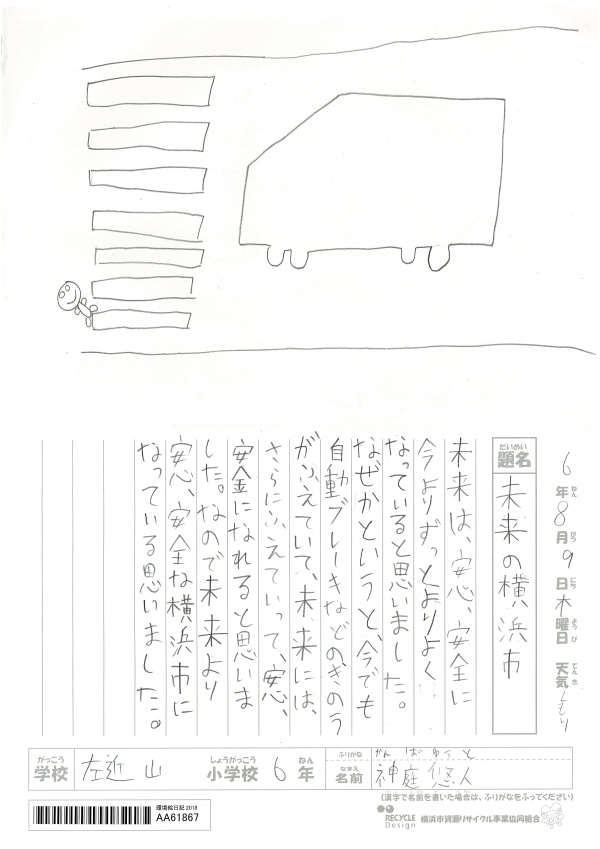 6年8月9日木曜日 天気くもり
ねん がつ にち ようび てんき
だいめい
題名 未来の横浜市
未来は、安心、安全に
今よりずっとよりよく
なっていると思いました。
なぜかというと、今でも
自動ブレーキなどのきのう
がふえていて、未来には、
さらにふえていって、安心、
安全になれると思いま
した。なので未来より
安心、安全な横浜市に
なっている思いました。
がっこう しょうがっこう ねん
学校 左近山 小学校 6年
ふりがな かんば ゆうと
なまえ
名前 神庭 悠人
(漢字で名前を書いた場合は、ふりがなをふってください)
環境絵日記2018
AA61867
RECYCLE Design 横浜市資源リサイクル事業協同組合